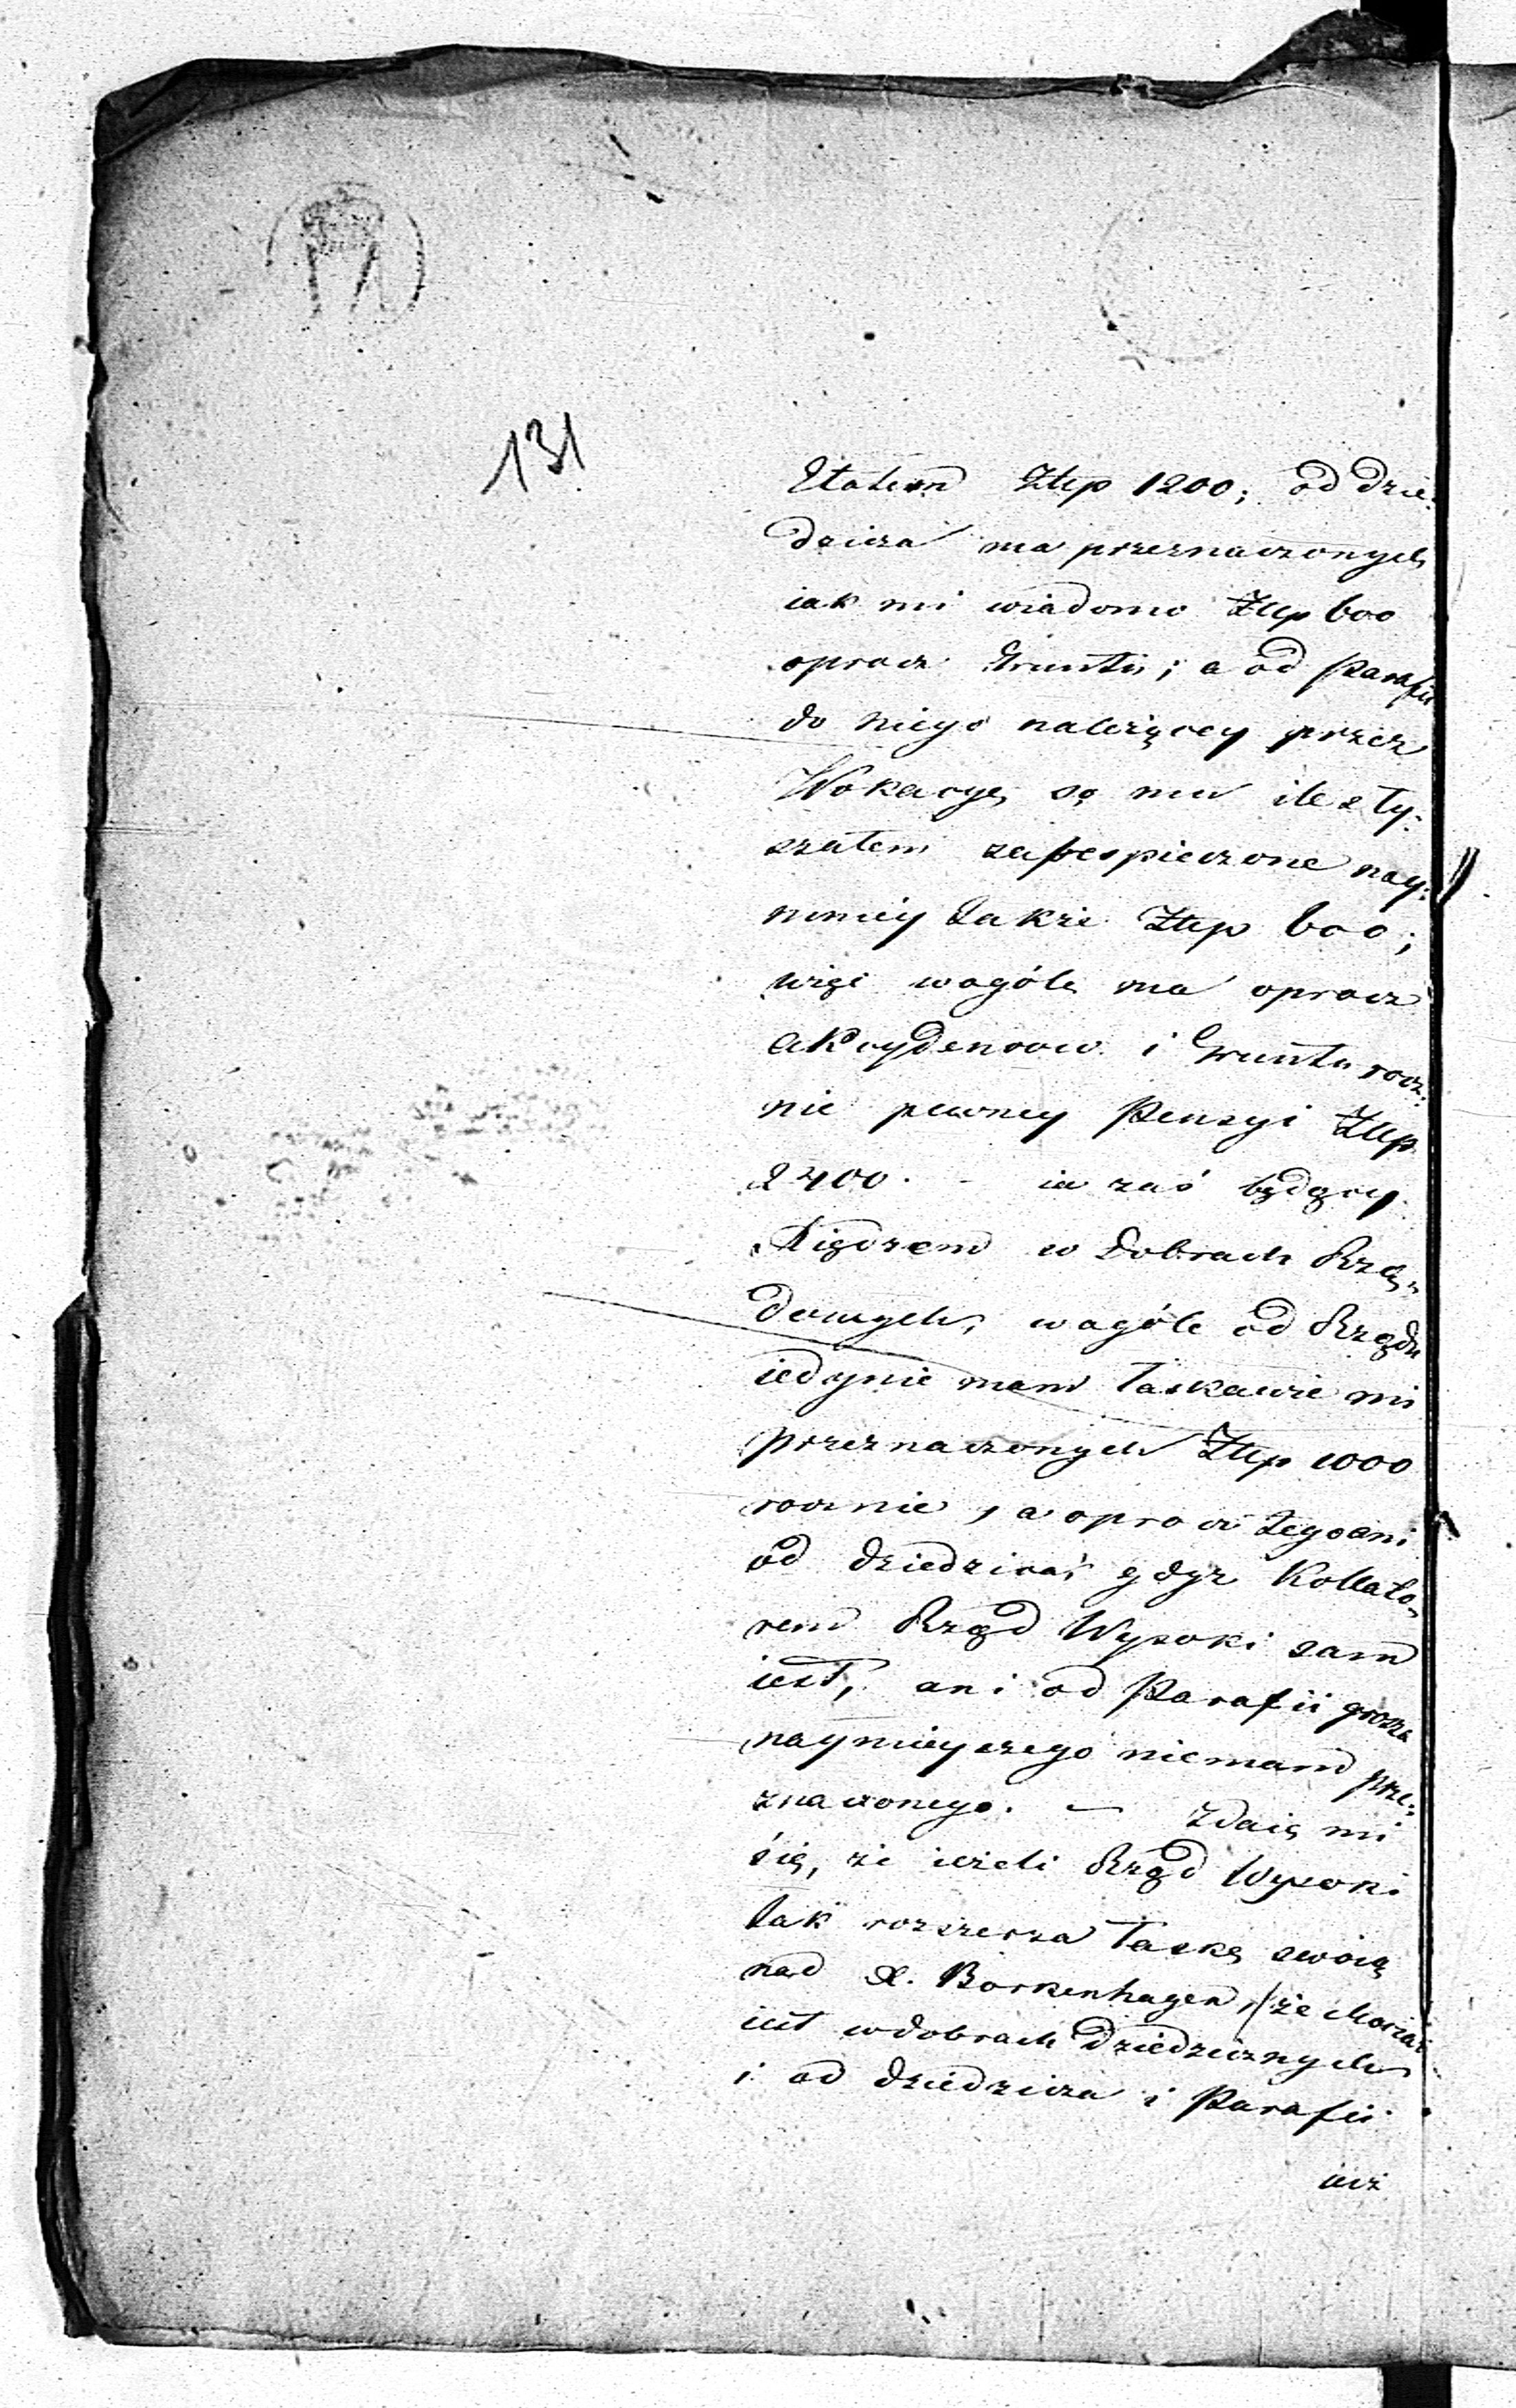 131
Etatem Złtp 1200; od dzie:
dzica ma przeznaczonych
iak mi wiadomo Złtp 600
oprocz Gruntu; a od Parafii
do niego należącey przez
Wokacyę, są mu ile sły:
szałem zabespieczone nay:
mniey także Złtp 600;
więc wogóle ma oprocz
akcydensow i Gruntu rocz:
nie pewney Pensyi Złtp
2400. – ia zaś będący
Xiędzem w Dobrach Rzą„
dowych, wogóle od Rządu
iedynie mam łaskawie mi
przeznaczonych Złtp 1000
rocznie, a oprocz tego ani
od dziedzica, gdyż Kollato„
rem Rząd Wysoki sam
iest, ani od Parafii grosza
naymnieyszego niemam prze:
znaczonego. – Zdaie mi
się, że ieżeli Rząd Wysoki
tak rozszerza łaskę swoię
nad X. Borkenhagen, że
iest w dobrach Dziedzicznych
i od dziedzica i Parafii
iuż